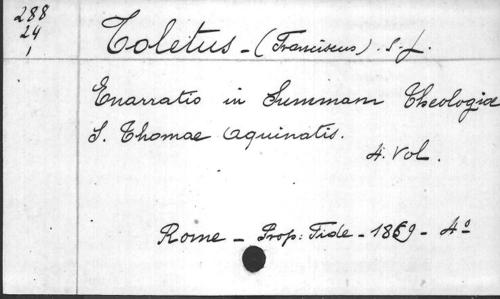 288
24
1
Toletus - (Franciscus). S. J.
Enarratio in Summam Theologiæ
S. Thomae Aquinatis.
4. Vol.
Rome - Prop: Fide - 1869 - 4º